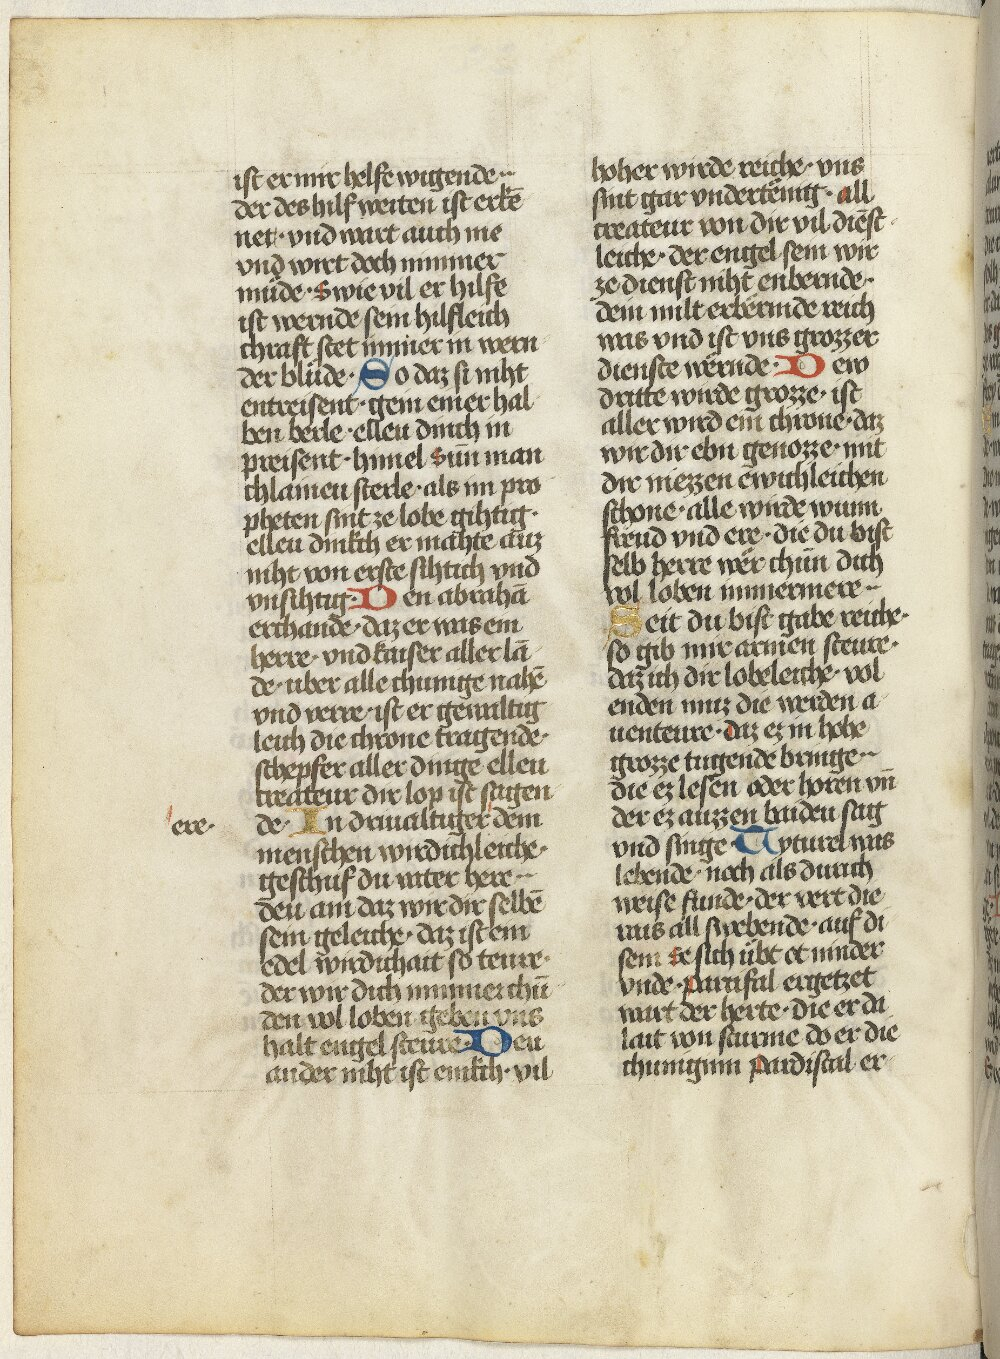 ist er mir helfe wigende·
der des hilf weiten ist erkē
net· vnd wart auch nie
vnd wirt doch nimmer
müde· swie vil er hilfe
ist wernde sein hilfleich
chraft stet immer in wern
der blüde· So daz si niht
entreisent· gein einer hal
ben berle· elleu dinch in
preisent· himel sunn man
chlaineu sterle· als im pro
pheten sint ze lobe gihtig·
elleu dinkch er mahte auz
niht von erste sihtich vnd
vnsihtig· Den abrahā
erchande· daz er was ein
herre· vnd kaiser aller lā
de· uber alle chunige nahē
vnd verre· ist er gewaltig
leich die chrone tragende·
schepfer aller dinge elleu
createur dir lop ist sagen
de· In drivaltuger dem
ere·
menschen wirdichleiche·
geschuf du vater here·
deu ain daz wir dir selbē
sein geleiche· daz ist ein
edel wirdichait so teure·
der wir dich nimmer chū
den vol loben igeben vns
halt engel steure· Deu
ander niht ist einkch· vil
hoher wirde reiche· vns
sint gar vndertēnig· all
createur von dir vil dienst
leiche· der engel sein wir
ze dienst niht enbernde·
dein milt erbermde reich
was vnd ist vns grozzer
dienste wernde· Dew
dritte wirde grozze· ist
aller wird ein chrone· daz
wir dir ebn genozze· mit
dir niezzen ewichleichen
schone· alle wirde wunn
freud vnd ere· die du bist
selb herre wer chün dich
vol loben immermere·
Seit du bist gabe reiche·
so gib mir armen steure·
daz ich dir lobeleiche· vol
enden muz die werden a
uenteure· daz ez in hohe
grozze tugende bringe·
die ez lesen oder horen vn̄
der ez auzzen baiden sag
vnd singe· Tyturel was
lebende· noch als durch
weise funde· der vert die
was all swebende· auf di
sem se sich übt ot ninder
vnde· partifal ergetzet
wart der herte· die er da
lait von sturme do er die
chunigum pardiscal er